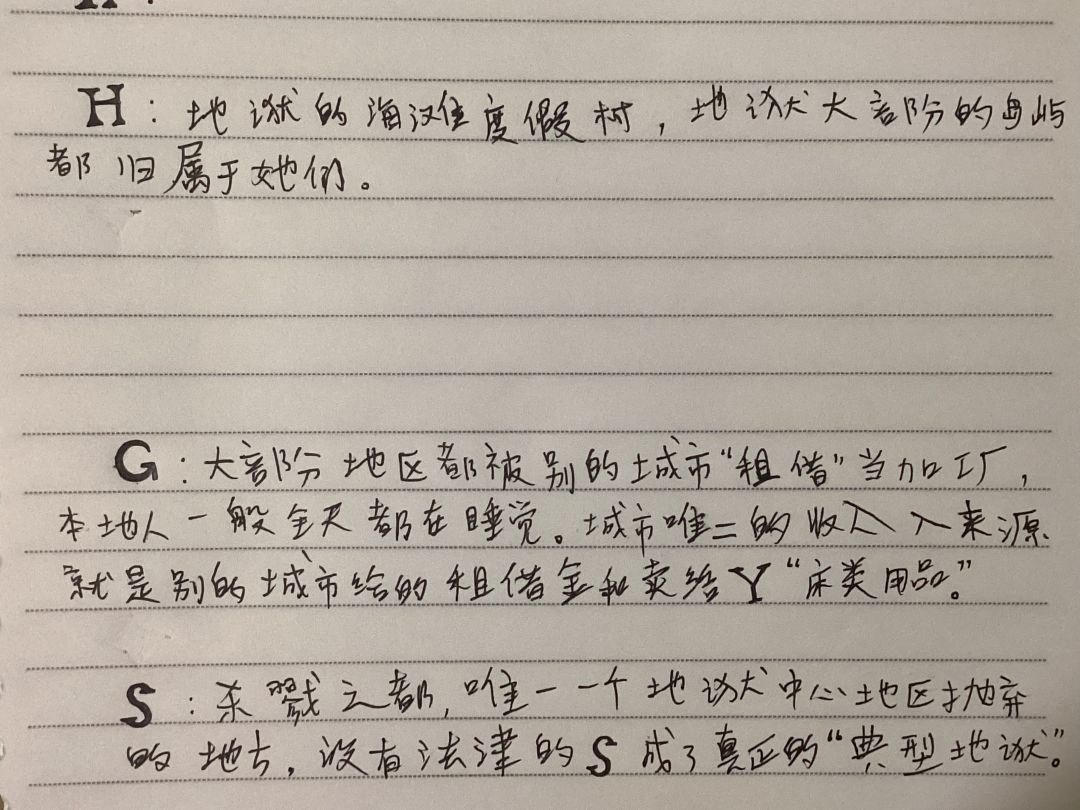 H：地狱的海滩度假村，地狱大部分的岛屿
都归属于她们。
G：大部分地区都被别的城市“租借”当加工厂，
本地人一般全天都在睡觉。城市唯二的收入入来源
就是别的城市给的租借金和卖给Y“床类用品”。
S：杀戮之都，唯一一个地狱中心地区抛弃
的地方，没有法律的S成了真正的“典型地狱”。